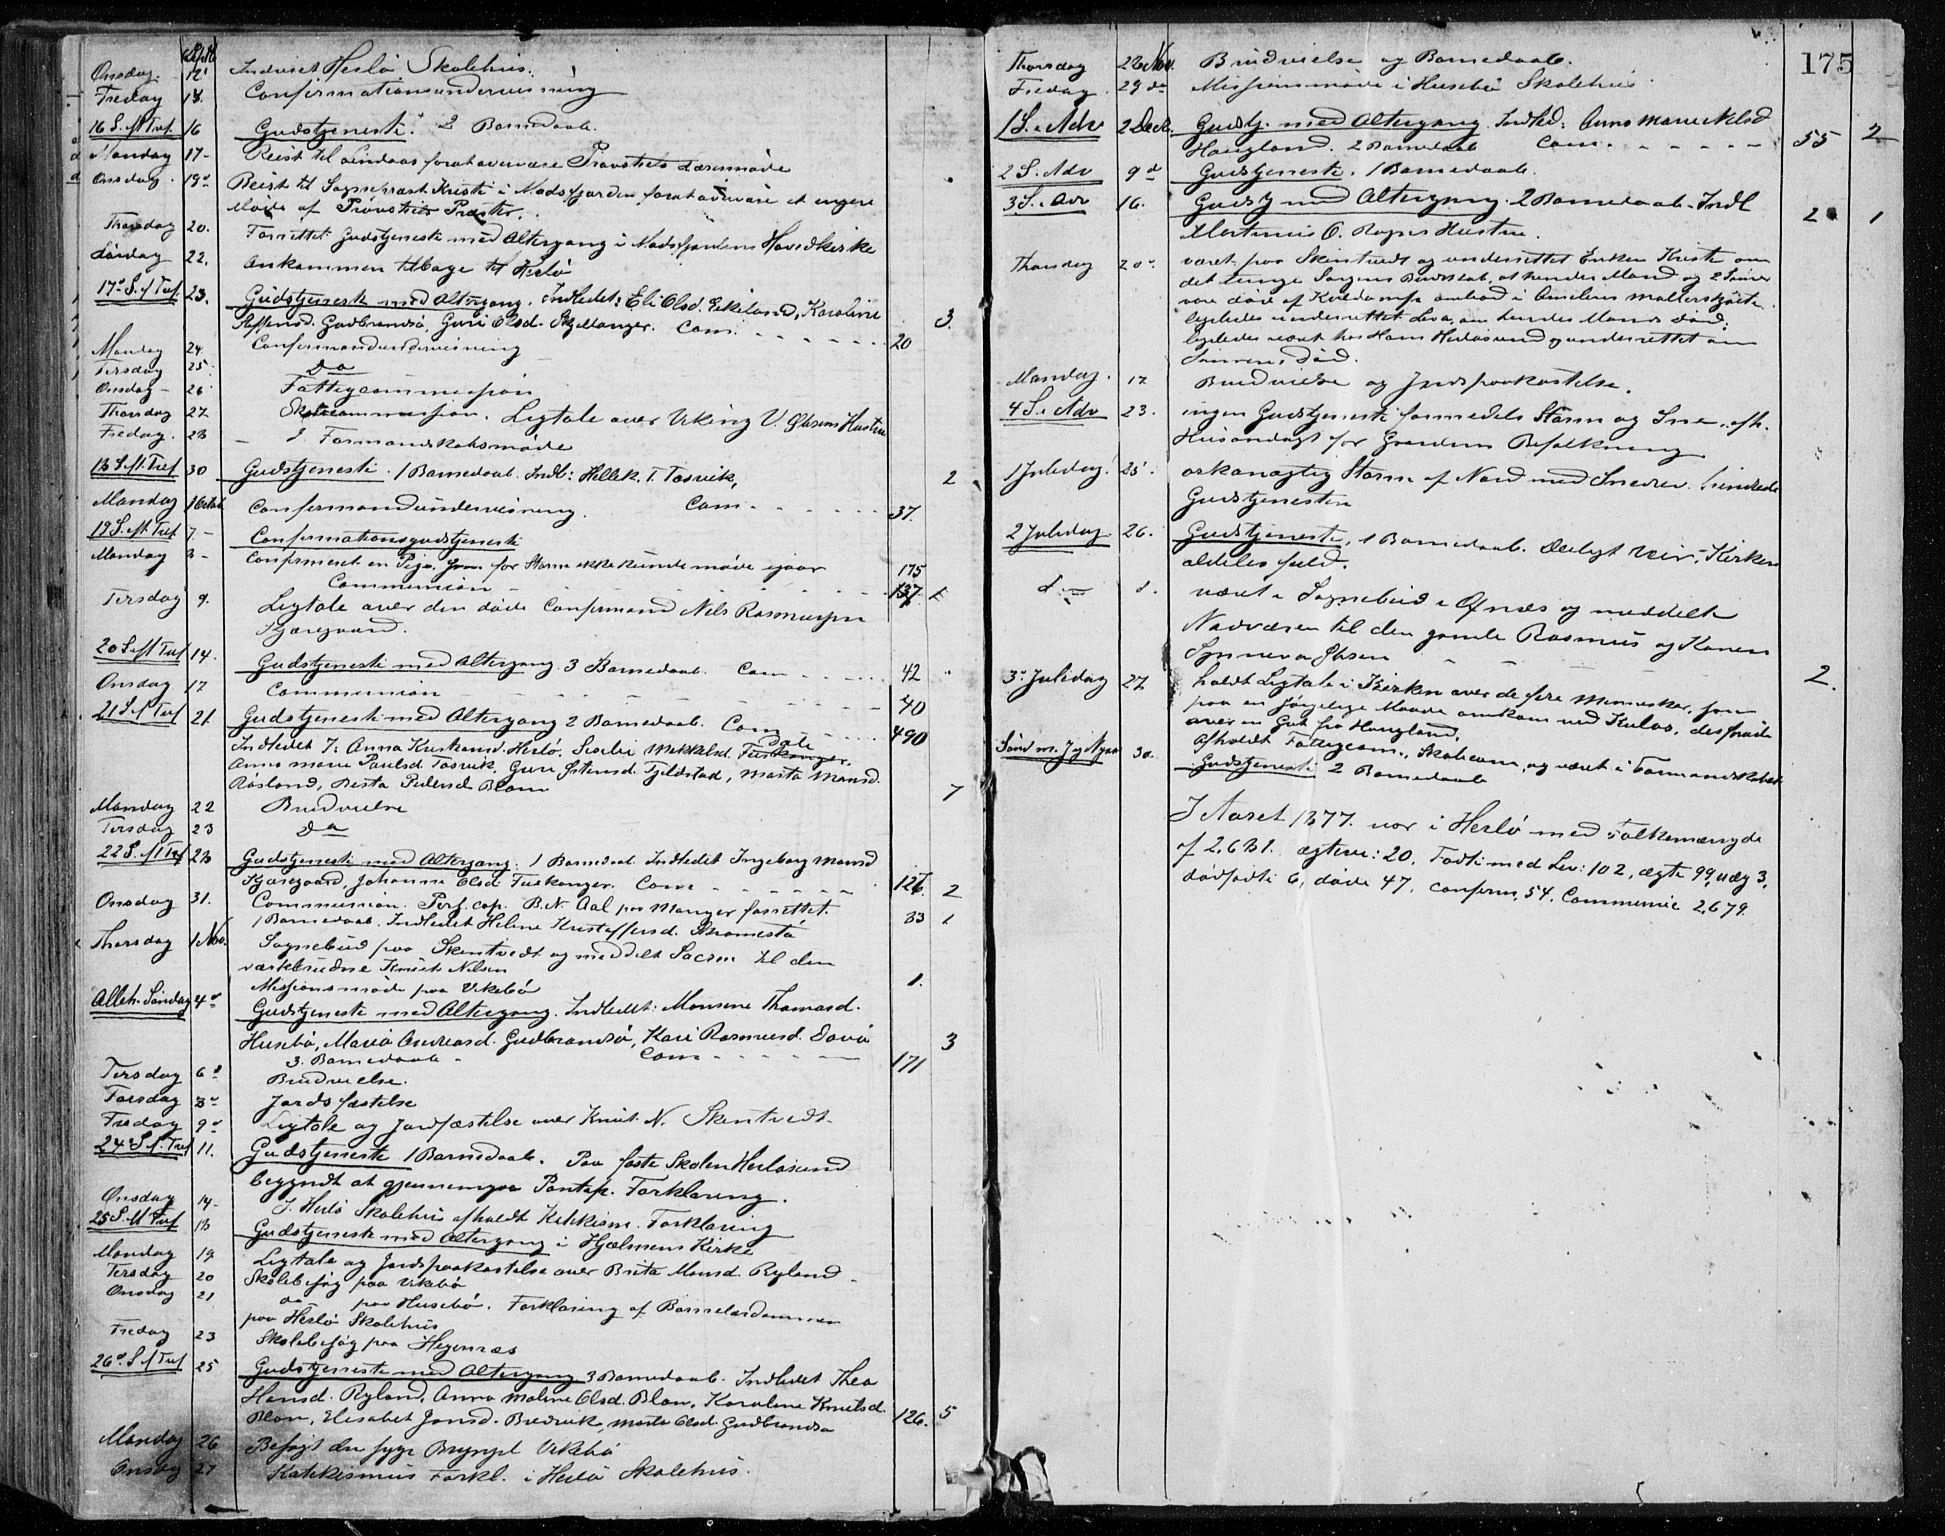 Septb
Onsdag 12 Indviet Herlø Skolehus.
Fredag 14. Confirmationsundervisning
16 S. eft Tref. 16 Gudstjeneste. 2 Barnedaab.
Mandag 17 - Reist til Lindaas forat overvære Provstiets Læsemøde
Onsdag 19 Reist til Sognepræst Kriste i Masfjorden forat overvære et engere
Møde af Provstiets Præster.
Thorsdag 20. Forrettet Gudstjeneste med Altergang i Masfjordens Hovedkirke
Lørdag 22. Ankommen tilbage til Herlø
17 S. ef Tref 23. Gudstjeneste med Altergang. Indledet: Eli Olsd. Eikeland, Karoline 3.
Steffensd. Gudbrandsø, Guri Olsd. Skjellanger. Com. - - - - - 20
Mandag 24. Confirmandundervisning
Tirsdag 25. Do
Onsdag - 26 Fattigcommission
Thorsdag 27. Skolecommission. Ligtale over Viking V. Hustru
Fredag. 28 - I Formandskabsmøde
18 S. eft. Tref 30 Gudstjeneste. 1 Barnedaab. Indl: Hellek. T. Tosvik, 2
Mandag 1 Octob Confirmandundervisning. Com - - - - - 37.
19 S. eft. Tref 7 - Confirmationsgudstjeneste
Mandag 8 - Confirmeret en Pige, som for Storm ikke kunde møde igaar 175
Communion - - - - - 137
Tirsdag 9. Ligtale over den døde Confirmand Nels Rasmussen
Kjæregaard.
20 S. eft Tref 14. Gudstjeneste med Altergang 3 Barnedaab. Com - - - 42
Onsdag 17 Communion - - - - - 40
21 S. ef Tref 21. Gudstjeneste med Altergang 2 Barnedaab. Com - - - 490
Indledet 7: Anna Kristensd. Herlø, Mikkelsd. Fuskanger,
Anne Marie Paulsd Tosvik, Guri Fjeldstad, Marta Monsd.
Røsland, Brita Pedersd Blom 7
Mandag 22 Brudvielse
Tirsdag 23 Do
22 S. eft Tref 28 Gudstjeneste med Altergang. 1 Barnedaab Indledet Ingeborg Monsd
Kjæregaard, Johanna Olsd Fuskanger. Com - - - - - 127 2
Onsdag 31. Communion. Pers. cap. B. N. Aal paa Manger forrettet. 33 1
1 Barnedaab. Indledet Helene Kristoffersd.
Thorsdag 1 Nov. Sognebud paa Skintvedt og meddelt Sacrm til den
værkbrudne Knut Nilsen 1.
Missionsmøde paa Vikebø
Alleh. Søndag 4 Gudstjeneste med Altergang. Indledet: Monsine Thomasd.
Husebø, Maria Andreasd. Gudbrandsø, Kari Rasmusd. Davø 3
3. Barnedaab - Com - - - - - 171
Tirsdag 6 Brudvielse.
Torsdag 8 Jordfæstelse
Fredag 9 Ligtale og Jordfæstelse over Knut N. Skintvedt.
24 S. ef. Tref 11. Gudstjeneste 1 Barnedaab. Paa faste Skolen Herløsund
begyndt at gjennemgaa Pontop. Forklaring.
Onsdag 14 - I Herlø Skolehus afholdt Katekism. Forklaring
25 S. eft Tref 18 Gudstjeneste med Altergang i Hjelmens Kirke
Mandag 19 Ligtale og Jordspaakastelse over Brita Monsd. Ryland -
Tirsdag 20 Skolebesøg paa Vikebø
Onsdag 21 do paa Husebø. Forklaring af Barnelærdommen
paa Herlø Skolehus
Fredag 23 Skolebesøg paa Hegernæs
26 S. ef Tref 25 Gudstjeneste med Altergang 3 Barnedaab. Indledet Thea
Hansd. Ryland, Anna Maline Olsd. Blom, Karoline Knutsd.
Blom, Elisabet Jonsd. Bredvik, Marta Olsd. Gudbrandsø 126. 5
Mandag 26 Besøgt den syge Brynjel Vikebø
Onsdag 27 Katekismus Forkl. i Herlø Skolehus.
175
Thorsdag 28 Nov. Brudvielse og Barnedaab.
Fredag. 29 do Missionsmøde i Husebø Skolehus
1 S. i Adv 2 Decbr. Gudstj. med Altergang. Indled: Anne Marie Nelsd
Haugland. 2 Barnedaab Com. - - - - - 55 2
2 S. Adv 9 d Gudstjeneste. 1 Barnedaab.
3 S. Adv 16. Gudstj med Altergang. 2 Barnedaab. Indl 2 1
Martinus O. Hustru.
Thorsdag 20. været paa Skintvedt og underrettet Enken Kriste om
det tunge Sorgens Budskab, at hendes Mand og 2 Sønner
vare døde af Kuldamp ombord i
ligeledes underrettet Lava, om hendes Mands Død.
ligeledes været hos Hans Herløsund og underrettet om
Sønnens Død.
Mandag. 17 Brudvielse og Jordspaakastelse.
4 S. i Adv 23. ingen Gudstjeneste formedelst Storm og Sne. afh.
Husandagt for Gaardens Befolkning
1 Juledag 25. orkanagtig Storm af Nord med Snedrev. hindrede
Gudstjenesten
2 Juledag 26. Gudstjeneste, 1 Barnedaab. Deiligt Veir, Kirken
aldeles fuld.
d - d. været i Sognebud i og meddelte
Nadveren til den gamle Rasmus og Konen
Synneva - - - 2.
3. Juledag 27. holdt Ligtale i Kirken over de fire Mennesker, som
paa en sørgelige Maade omkom ved Kulos, desforuden
over en Gut fra Haugland.
Afholdt Fattigcom., Skolecom, og været i Formandskabet
Sønd m. J og Nyaar 30. Gudstjeneste 2 Barnedaab
I Aaret 1877. var i Herlø med Folkemængde
af 2,681. ægtev: 20. Fødte med Lev: 102, ægte 99, uæg 3,
dødfødte 6, døde 47, confirm. 54. Communic 2,679.